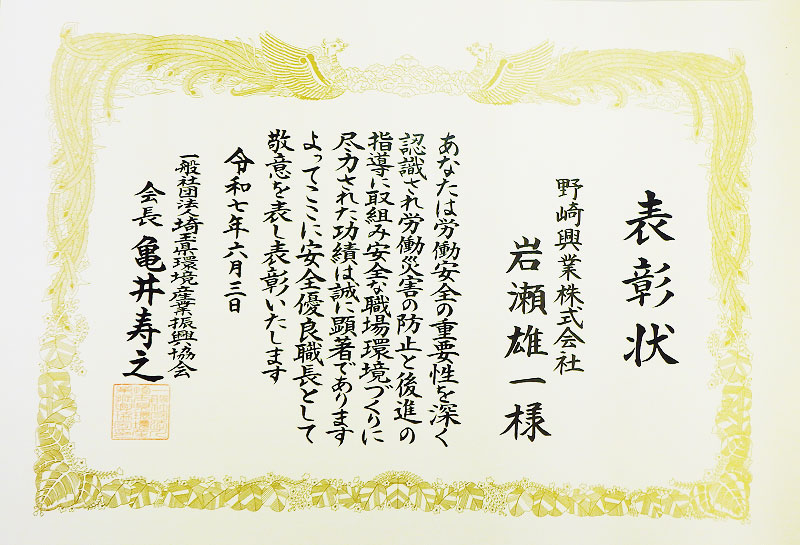 表彰状
野崎興業株式会社
岩瀬雄一様
あなたは労働安全の重要性を深く
認識され労働災害の防止と後進の
指導に取組み安全な職場環境づくりに
尽力された功績は誠に顕著であります
よってここに安全優良職長として
敬意を表し表彰いたします
令和七年六月三日
一般社団法人埼玉県環境産業振興協会
会長 亀井寿之